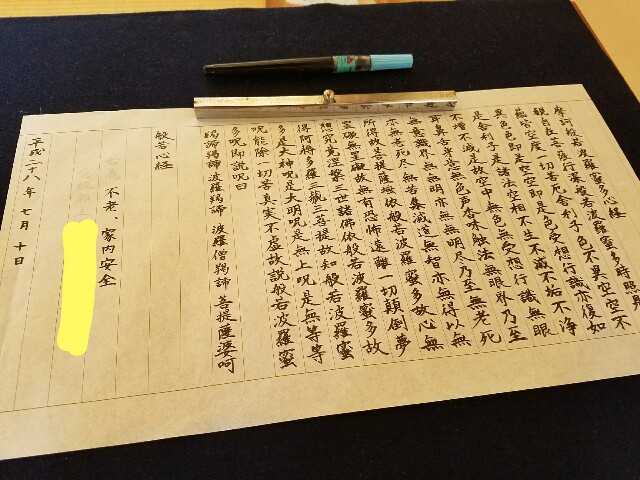 摩訶般若波羅蜜多心経
観自在菩薩行深般若波羅蜜多時照見
蘊皆空度一切苦厄舎利子色不異空空不
異色色即是空空即是色受想行識亦復如
是舎利子是諸法空相不生不滅不垢不浄
不増不減是故空中無色無受想行識無眼
耳鼻舌身意無色声香味触法無眼界乃至
無意識界無無明亦無無明尽乃至無老死
亦無老死尽無苦集滅道無智亦無得以無
所得故菩提薩埵依般若波羅蜜多故心無
罣礙無罣礙故無有恐怖遠離一切顛倒夢
想究竟涅槃三世諸佛依般若波羅蜜多故
得阿耨多羅三藐三菩提故知般若波羅蜜
多是大神呪是大明呪是無上呪是無等等
呪能除一切苦真実不虚故説般若波羅蜜
多呪即説呪曰
羯諦羯諦 波羅羯諦 波羅僧羯諦 菩提薩婆呵
般若心経
不老、家内安全
平成二十八年 七月 十日